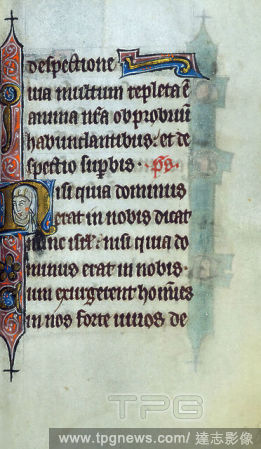 despectione
uia multum repleta ē
anima nr̄a obprobriū
habundantibus. et de
spectio suꝑbis. ps.
Nisi quia dominus
erat in nobis dicat
nunc isrl̄. nisi quia do
minus erat in nobis.
um exurgerent homīes
in nos forte uiuos de
TPG
www.tpgnews.com/ 達志影像